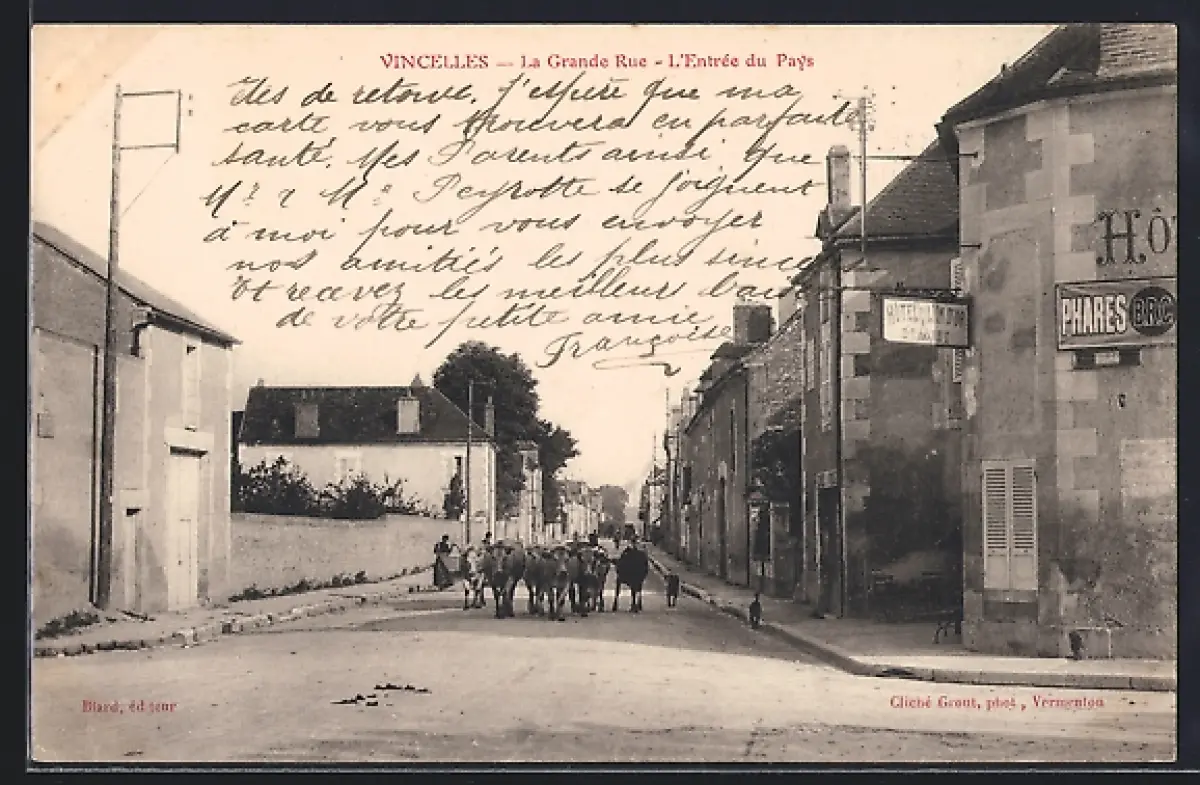 VINCELLES — La Grande Rue - L'Entrée du Pays
de retour. J'espère que ma
carte vous trouvera en parfaite
santé. Mes Parents ainsi que
Mr & Me Peyrotte se joignent
à moi pour vous envoyer
nos amitiés les plus
Et recevez les meilleurs
de votre petite amie
Françoise
HÔ
PHARES B.R.C
Biard, éditeur
Cliché Grout, phot, Vermenton